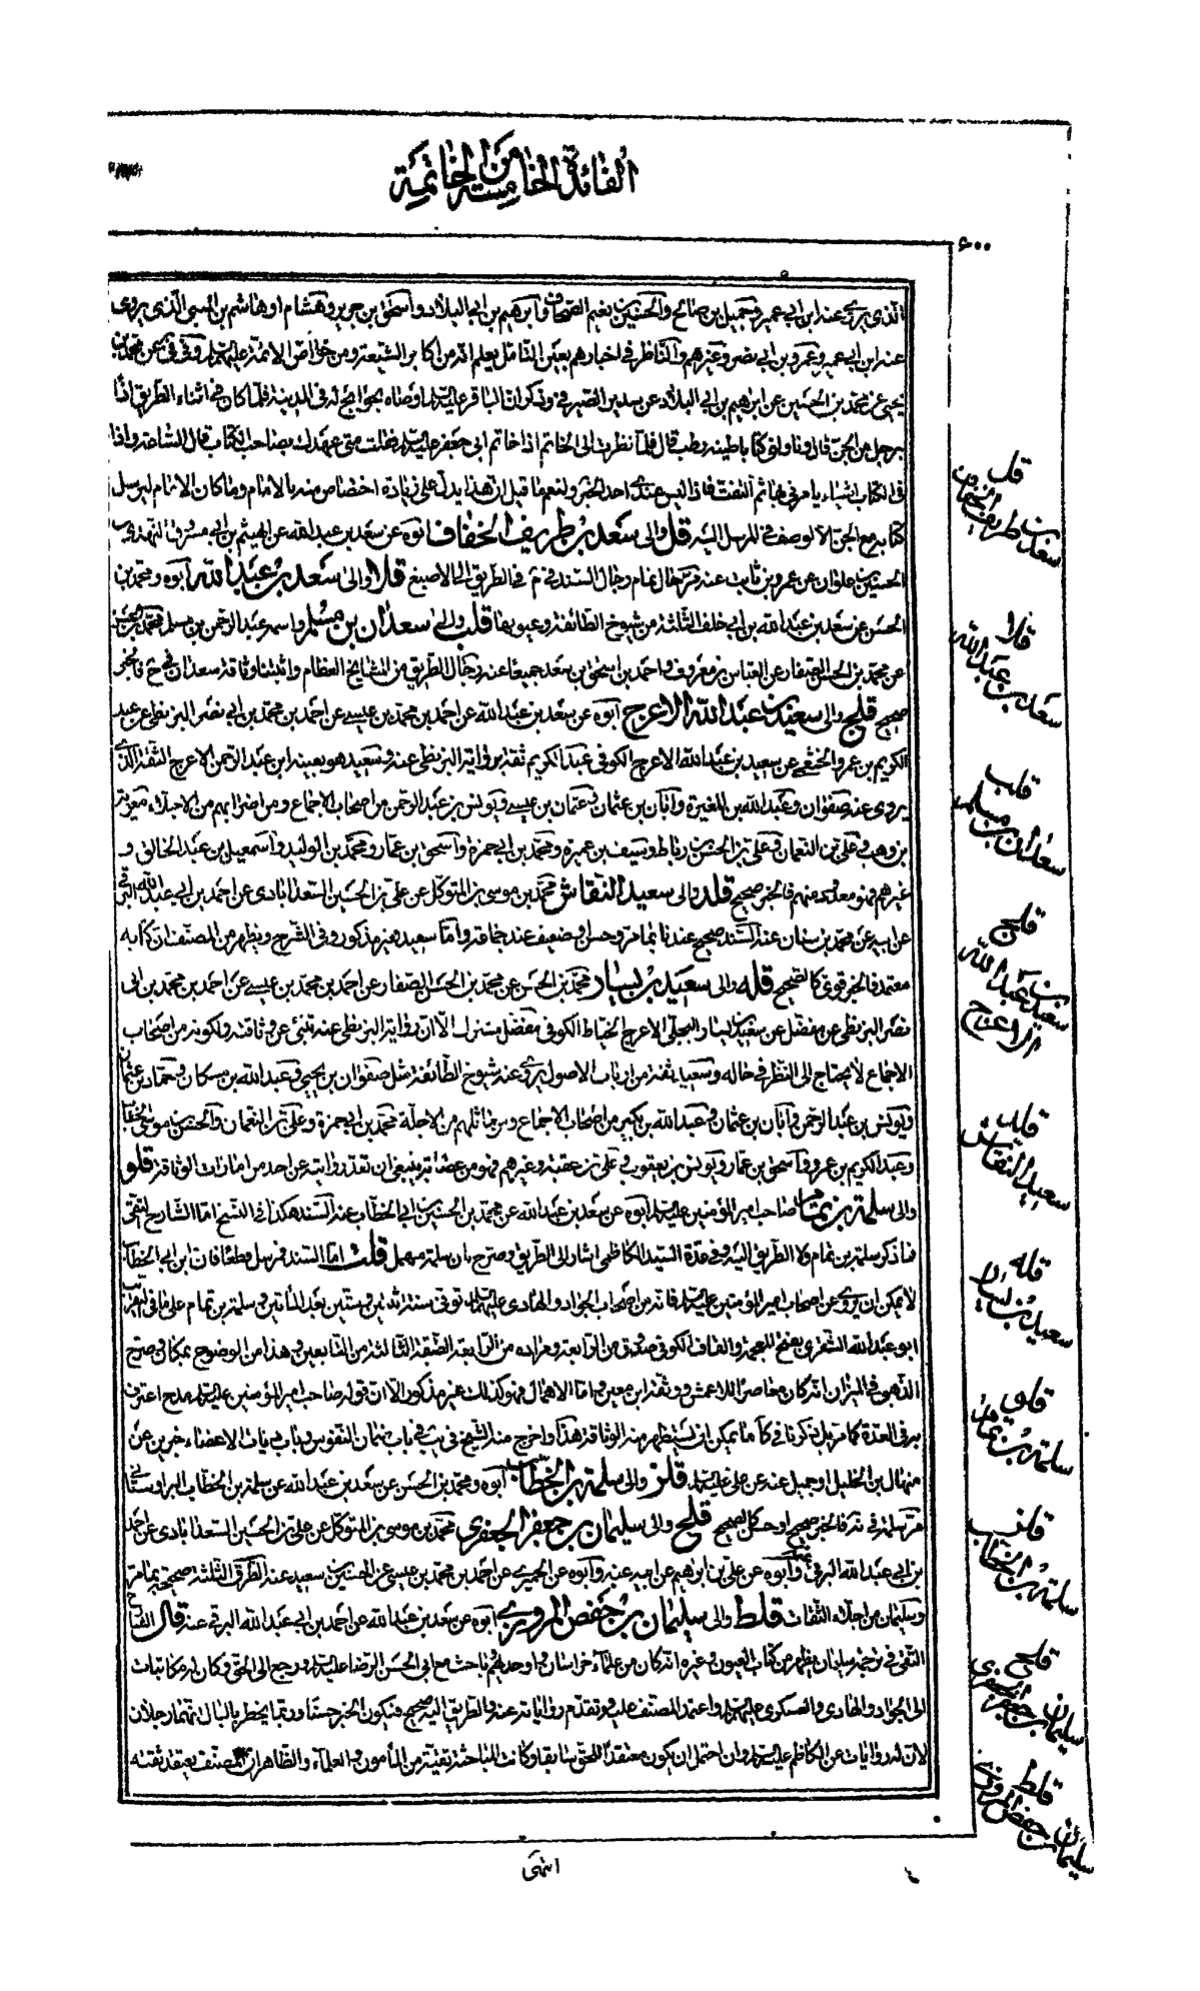 الفائدة الخامسة من الخاتمة
٦٠٠
الذى يروى عنه ابن ابى عمير وجميل بن صالح والحسين بن نعيم الصحاف وابرهيم بن ابى البلاد واسحق بن جرير وهشام او هاشم بن المثنى الذى يروى
عنه ابن ابى عمير وعمرو بن ابى نصر وغيرهم والناظر فى اخبارهم بعين التامل يعلم انه من اكابر الشيعة ومن خواص الائمة عليهم السلام
يحيى عن محمد بن الحسين عن ابرهيم بن ابى البلاد عن سدير الصيرفى وذكر ان الباقر عليه السلام اوصاه بحوائج له فى المدينة فلما كان فى اثناء الطريق اذا
برجل من الجن قال وناولنى كتابا طينه رطب قال فلما نظرت الى الخاتم اذا خاتم ابى جعفر عليه السلام فقلت متى عهدك بصاحب الكتاب قال الساعة واذا
فى الكتاب اشياء يامرنى بها ثم التفت فاذا ليس عندى احد الخبر ولنعم ما قيل ان هذا يدل على زيادة اختصاص منه بالامام وما كان الامام ليرسل
كتابه مع الجن الا لوصف فى المرسل اليه قل والى سعد بن طريف الخفاف ابوه عن سعد بن عبد الله عن الهيثم بن ابى مسروق النهدى عن
الحسين بن علوان عن عمرو بن ثابت عنه مر حال تمام رجال السند فى الطريق الى الاصبغ قلا والى سعد بن عبد الله ابوه ومحمد بن
الحسن عن سعد بن عبد الله بن ابى خلف الثلثة من شيوخ الطائفة وعيونها قلب والى سعدان بن مسلم واسمه عبد الرحمن بن مسلم محمد بن الحسن
عن محمد بن الحسن الصفار عن العباس بن معروف واحمد بن اسحق بن سعد جميعا عنه رجال الطريق من المشايخ العظام واثبتنا وثاقة سعدان فالخبر
صحيح قلج والى سعيد بن عبد الله الاعرج ابوه عن سعد بن عبد الله عن احمد بن محمد بن عيسى عن احمد بن محمد بن ابى نصر البزنطى عن عبد
الكريم بن عمرو الخثعمى عن سعيد بن عبد الله الاعرج الكوفى عبد الكريم ثقة برواية البزنطى عنه وسعيد هو بعينه ابن عبد الرحمن الاعرج الثقة الذى
يروى عنه صفوان وعبد الله بن المغيرة وابان بن عثمان وعثمان بن عيسى ويونس بن عبد الرحمن من اصحاب الاجماع ومن اضرابهم من الاجلاء معوية
بن وهب وعلى بن النعمان وعلى بن الحسن بن رباط وسيف بن عميرة ومحمد بن ابى حمزة واسحق بن عمار ومحمد بن الوليد واسمعيل بن عبد الخالق و
غيرهم فهو معدود منهم فالخبر صحيح قلد والى سعيد النقاش محمد بن موسى بن المتوكل عن على بن الحسين السعدابادى عن احمد بن ابى عبد الله البرقى
عن ابيه عن محمد بن سنان عنه السند صحيح عندنا بما مر وحسن او ضعيف عند جماعة واما سعيد فغير مذكور وفى الشرح ويظهر من المصنف ان كتابه
معتمد فالخبر قوى كالصحيح قله والى سعيد بن يسار محمد بن الحسن عن محمد بن الحسن الصفار عن احمد بن محمد بن عيسى عن احمد بن محمد بن ابى
نصر البزنطى عن مفضل عن سعيد بن يسار العجلى الاعرج الحناط الكوفى مفضل مشترك الا ان رواية البزنطى عنه تنبئ عن وثاقته ولكونه من اصحاب
الاجماع لا يحتاج الى النظر فى حاله وسعيد ثقة من ارباب الاصول يروى عنه شيوخ الطائفة مثل صفوان بن يحيى وعبد الله بن مسكان وحماد بن عثمان
ويونس بن عبد الرحمن وابان بن عثمان وعبد الله بن بكير من اصحاب الاجماع وممن ماثلهم من الاجلة محمد بن ابى حمزة وعلى بن النعمان والحسن بن موسى الخشاب
وعبد الكريم بن عمرو واسحق بن عمار ويونس بن يعقوب وعلى بن عقبة وغيرهم فهو من عصابة ينبغى ان تعد رواية عن احد من امارات الوثاقة قلو
والى سلمة بن تمام صاحب امير المؤمنين عليه السلام ابوه عن سعد بن عبد الله عن محمد بن الحسين بن ابى الخطاب عنه السند هكذا فى النسخ اما الشارح التقى
فما ذكر سلمة بن تمام ولا الطريق اليه وفى عدة السيد الكاظمى اشار الى الطريق وصرح بان سلمة مهمل قلت اما السند فمرسل قطعا فان ابن ابى الخطاب
لا يمكن ان يروى عن اصحاب امير المؤمنين عليه السلام فانه من اصحاب الجواد والهادى عليهما السلام توفى سنة اثنين وستين بعد المأتين وسلمة بن تمام على ما فى التقريب
ابو عبد الله الشقرى بفتح المعجمة والقاف الكوفى صدوق من الرابعة ومراده من الرابعة الطبقة الثالثة من التابعين وهذا من الوضوح بمكان وصرح
الذهبى فى الميزان انه كان معاصرا للاعمش ووثقه ابن معين واما الاهمال فهو كذلك غير مذكور الا ان قوله صاحب امير المؤمنين عليه السلام مدح اعترف
به فى العدة كما مر بل ذكرنا فى ما يمكن ان يستظهر منه الوثاقة هذا واخرج منه الشيخ فى يب فى باب ضمان النفوس وباب ديات الاعضاء خبرين عن
منهال بن الخليل او جميل عنه عن على عليه السلام قلز والى سلمة بن الخطاب ابوه ومحمد بن الحسن عن سعد بن عبد الله عن سلمة بن الخطاب البراوستانى
مر سلمة فالخبر صحيح او كالصحيح قلح والى سليمان بن جعفر الجعفرى محمد بن موسى بن المتوكل عن على بن الحسين السعدابادى عن احمد
بن ابى عبد الله البرقى عنه وابوه عن على بن ابرهيم عن ابيه عنه وابوه عن الحميرى عن احمد بن محمد بن عيسى عن الحسين بن سعيد عنه الطرق الثلثة صحيحة بما مر
وسليمان من اجلاء الثقات قلط والى سليمان بن حفص المروزى ابوه عن سعد بن عبد الله عن احمد بن ابى عبد الله البرقى عنه قال الشارح
التقى فى ترجمة سليمان يظهر من كتاب العيون وغيره انه كان من علماء خراسان واوحديهم باحث مع ابى الحسن الرضا عليه السلام ورجع الى الحق وكان له مكاتبات
الى الجواد والهادى والعسكرى عليهم السلام واعتمد المصنف عليه وتقدم رواياته عنه والطريق اليه صحيح فيكون الخبر حسنا وربما يخطر بالبال انهما رجلان
لان له روايات عن الكاظم عليه السلام وان احتمل ان يكون معتقدا للحق سابقا وكانت المباحثة تقية من المأمون والعلماء والظاهر ان المصنف يعتقد ثقته
انتهى
قل
سعد بن طريف الخفاف
قلا
سعد بن عبد الله
قلب
سعدان بن مسلم
قلج
سعيد بن عبد الله
الاعرج
قلد
سعيد النقاش
قله
سعيد بن يسار
قلو
سلمة بن تمام
قلز
سلمة بن الخطاب
قلح
سليمان بن جعفر الجعفرى
قلط
سليمان بن حفص المروزى